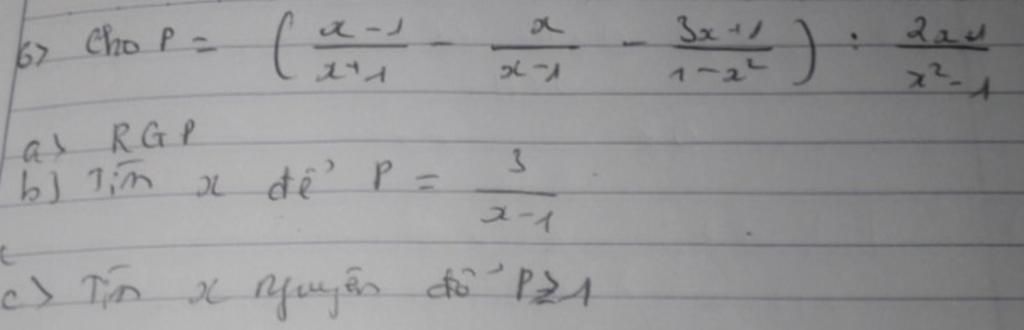 6> Cho P = ( (x-1)/(x+1) - x/(x-1) - (3x+1)/(1-x²) ) : (2x+1)/(x²-1)
a> RGP
b) Tìm x để P = 3/(x-1)
c> Tìm x nguyên để P≥1